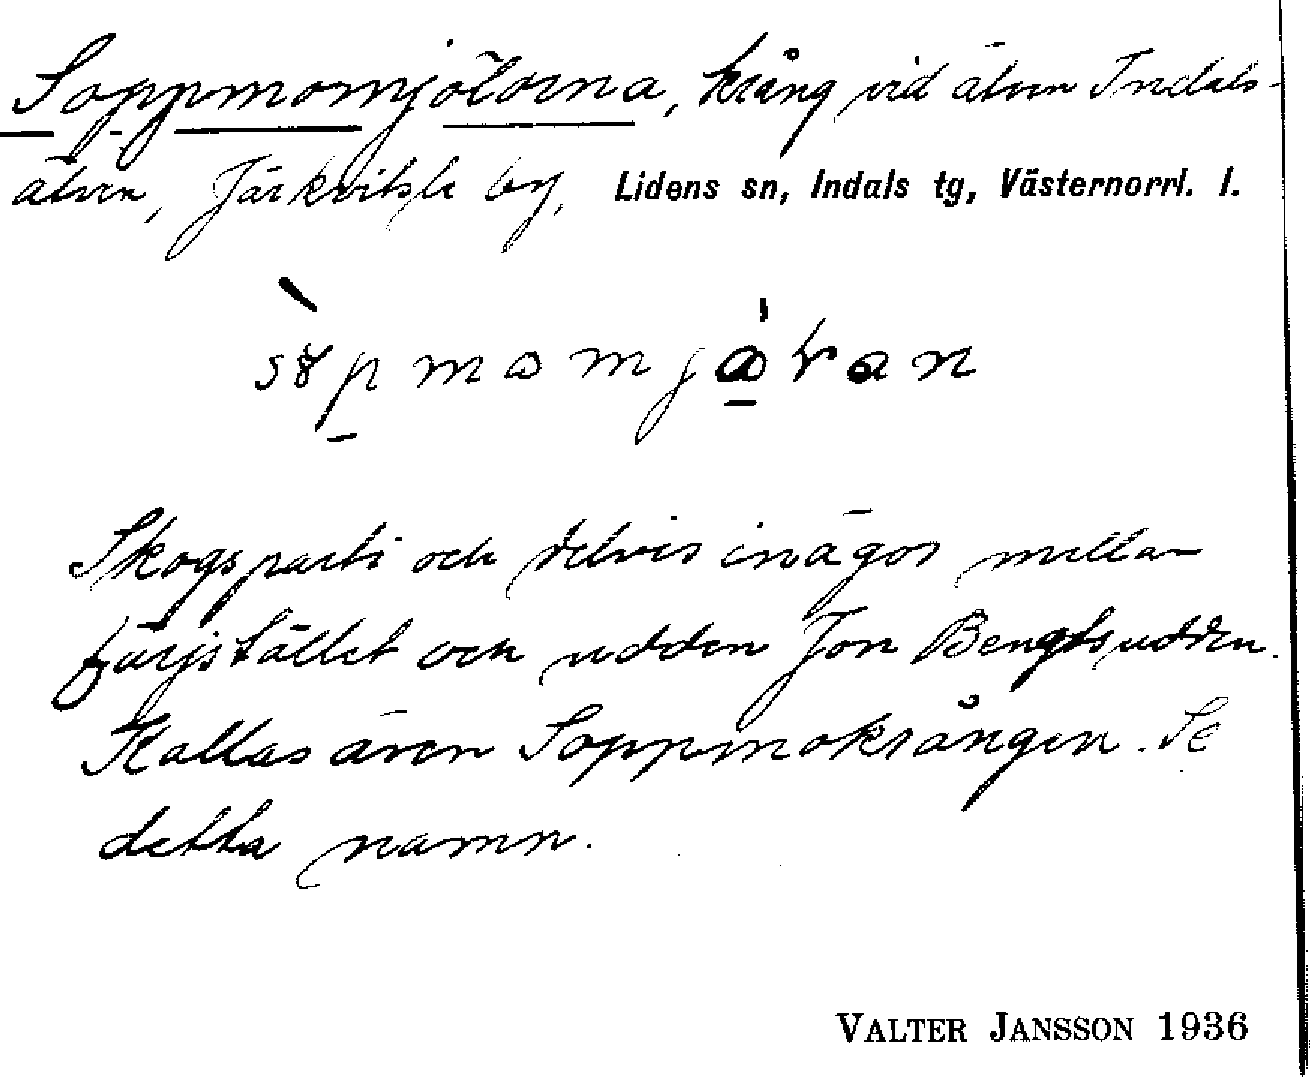 Soppmomjölorna, krång vid älven Indals-
älven, Järkvitsle by, Lidens sn, Indals tg, Västernorrl. l.
Skogsparti och delvis inägor mellan
färjstället och udden Jon Bengtsudden.
Kallas även Soppmokrången. Se
detta namn.
VALTER JANSSON 1936